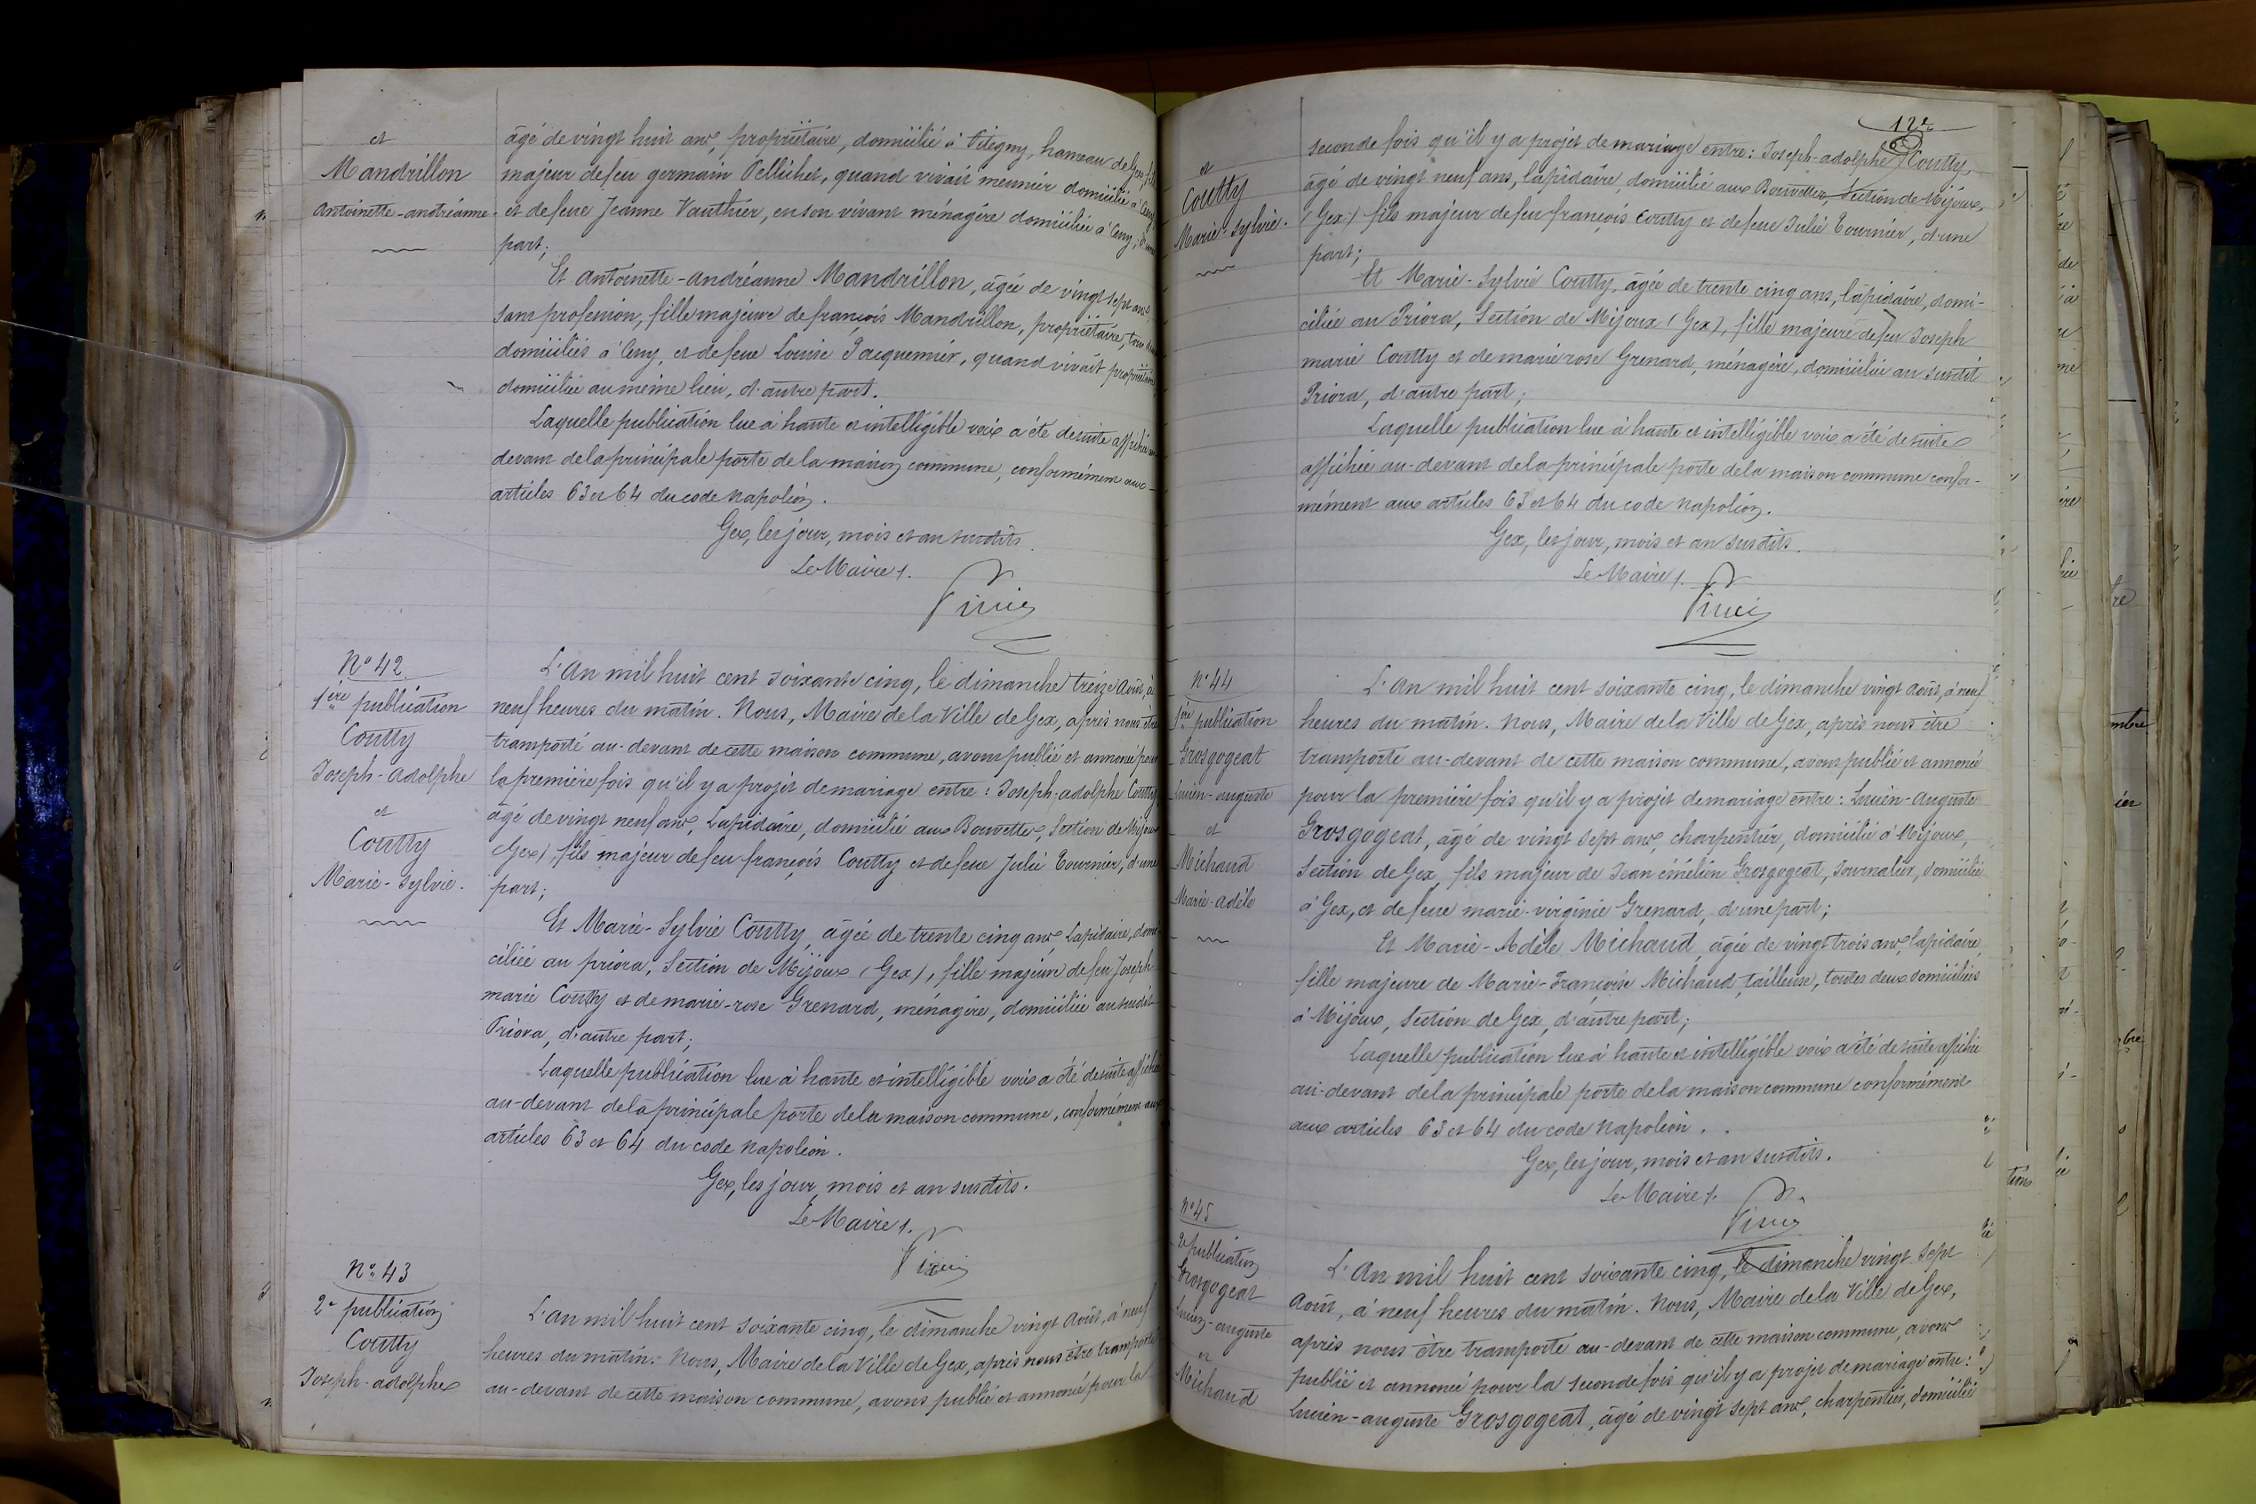 et
Mandrillon
Antoinette-andréanne.
âgé de vingt huit ans, propriétaire, domicilié à Pitegny, hameau de Gex, fils
majeur de feu germain Pellichet, quand vivait meunier domicilié à Cessy
et de feue Jeanne Vauthier, en son vivant ménagère domiciliée à Cessy, d'une
part;
Et Antoinette-andréanne Mandrillon, âgée de vingt sept ans
sans profession, fille majeure de françois Mandrillon, propriétaire, tous deux
domiciliés à Cessy, et de feue Louise Jacquemier, quand vivait propriétaire
domiciliée au même lieu, d'autre part.
Laquelle publication lue à haute et intelligible voix a été de suite affichée au
devant de la principale porte de la maison commune, conformément aux
articles 63 et 64 du code napoléon.
Gex, les jour, mois et an susdits.
Le Maire /.
N° 42
1ère publication
Coutty
Joseph-Adolphe
et
Coutty
Marie-Sylvie.
L'An mil huit cent soixante cinq, le dimanche treize Août, à
neuf heures du matin. Nous, Maire de la Ville de Gex, après nous être
transporté au-devant de cette maison commune, avons publié et annoncé pour
la première fois qu'il y a projet de mariage entre: Joseph-adolphe Coutty
âgé de vingt neuf ans, Lapidaire, domicilié aux Bouvettes, Section de Mijoux
(Gex), fils majeur de feu françois Coutty et de feue Julie Tournier, d'une
part;
Et Marie-Sylvie Coutty, âgée de trente cinq ans, Lapidaire, domi-
ciliée au priora, Section de Mijoux (Gex), fille majeure de feu Joseph
marie Coutty et de marie-rose Grenard, ménagère, domiciliée au susdit
Priora, d'autre part;
Laquelle publication lue à haute et intelligible voix a été de suite affichée
au-devant de la principale porte de la maison commune, conformément aux
articles 63 et 64 du code napoléon.
Gex, les jour, mois et an susdits.
Le Maire /.
N° 43
2e publication
Coutty
Joseph-adolphe
L'An mil huit cent soixante cinq, le dimanche vingt Août, à neuf
heures du matin. Nous, Maire de la Ville de Gex, après nous être transporté
au-devant de cette maison commune, avons publié et annoncé pour la
et
Coutty
Marie-Sylvie.
seconde fois qu'il y a projet de mariage entre: Joseph-adolphe Coutty,
âgé de vingt neuf ans, lapidaire, domicilié aux Bouvettes, Section de Mijoux,
(Gex) fils majeur de feu françois Coutty et de feue Julie Tournier, d'une
part;
Et Marie-Sylvie Coutty, âgée de trente cinq ans, lapidaire, domi-
ciliée au Priora, Section de Mijoux (Gex), fille majeure de feu Joseph
marie Coutty et de marie rose Grenard, ménagère, domiciliée au susdit
Priora, d'autre part;
Laquelle publication lue à haute et intelligible voix a été de suite
affichée au-devant de la principale porte de la maison commune confor-
mément aux articles 63 et 64 du code napoléon.
Gex, les jour, mois et an susdits.
Le Maire /.
N° 44
1ère publication
Grosgogeat
Lucien-auguste
et
Michaud
Marie-adèle
L'An mil huit cent soixante cinq, le dimanche vingt Août, à neuf
heures du matin. Nous, Maire de la Ville de Gex, après nous être
transporté au-devant de cette maison commune, avons publié et annoncé
pour la première fois qu'il y a projet de mariage entre: Lucien-Auguste
Grosgogeat, âgé de vingt sept ans, charpentier, domicilié à Mijoux,
Section de Gex, fils majeur de Jean émélien Grosgogeat, Journalier, domicilié
à Gex, et de feue marie-virginie Grenard, d'une part;
Et Marie-Adèle Michaud, âgée de vingt trois ans, lapidaire,
fille majeure de Marie-Françoise Michaud, tailleuse, toutes deux domiciliées
à Mijoux, Section de Gex, d'autre part;
Laquelle publication lue à haute et intelligible voix a été de suite affichée
au-devant de la principale porte de la maison commune conformément
aux articles 63 et 64 du code Napoléon.
Gex, les jour, mois et an susdits.
Le Maire /.
N° 45
2e publication
Grosgogeat
Lucien-auguste
et
Michaud
L'An mil huit cent soixante cinq, le dimanche vingt sept
Août, à neuf heures du matin. Nous, Maire de la Ville de Gex,
après nous être transporté au-devant de cette maison commune, avons
publié et annoncé pour la seconde fois qu'il y a projet de mariage entre:
Lucien-auguste Grosgogeat, âgé de vingt sept ans, charpentier, domicilié